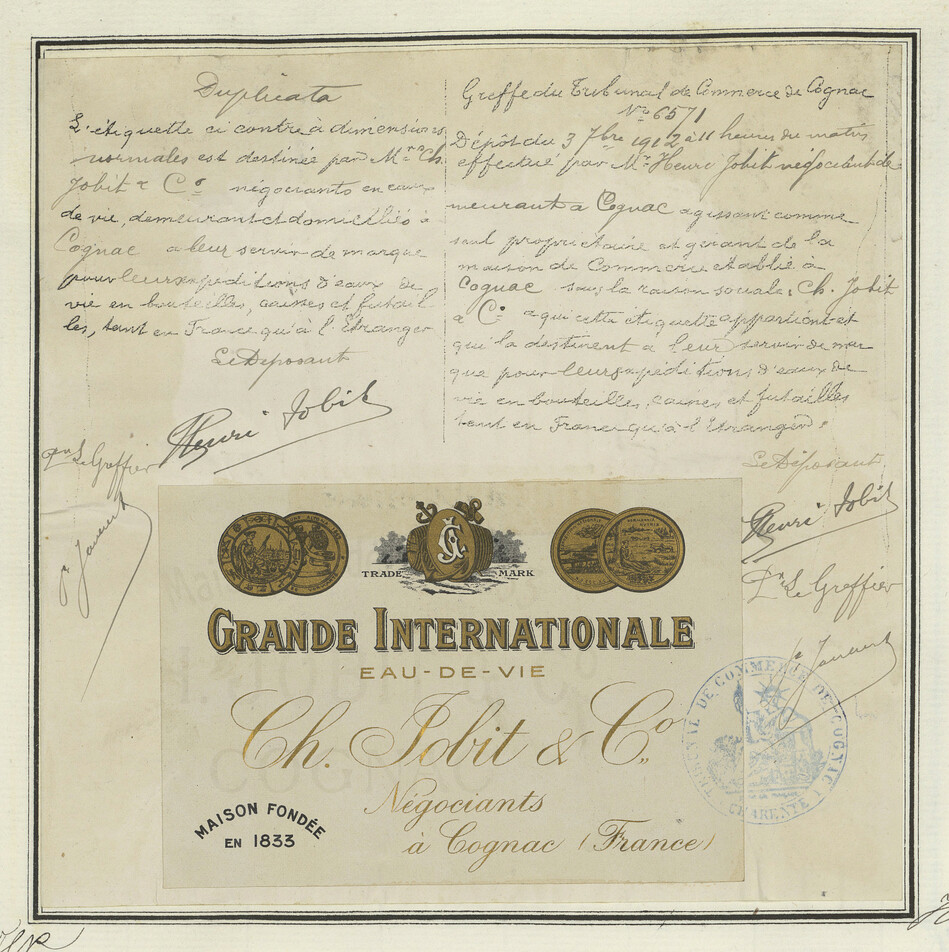 Duplicata
L'étiquette ci contre à dimensions
normales est destinée par Mrs Ch.
Jobit & Co négociants en eaux
de vie, demeurant et domiciliés à
Cognac a leur servir de marque
pour leurs expéditions d'eaux de
vie en bouteilles, caisses et futail
les, tant en France qu'à l'Etranger
Le Déposant
Henri Jobit
Le Greffier
Greffe du Tribunal de Commerce de Cognac
No 6571
Dépôt du 3 7bre 1912 à 11 heures du matin
effectué par Mr Henri Jobit négociant de
meurant à Cognac agissant comme
seul propriétaire et gérant de la
maison de Commerce établie à
Cognac sous la raison sociale, Ch. Jobit
& Co a qui cette étiquette appartient et
qui la destinent a leur servir de mar
que pour leurs expéditions d'eaux de
vie en bouteilles, caisses et futailles
tant en France qu'à l'Etranger
Le Déposant
Henri Jobit
Le Greffier
TRADE MARK
GRANDE INTERNATIONALE
EAU-DE-VIE
Ch. Jobit & Co
Négociants
à Cognac (France)
MAISON FONDÉE
EN 1833
TRIBUNAL DE COMMERCE DE COGNAC
CHARENTE